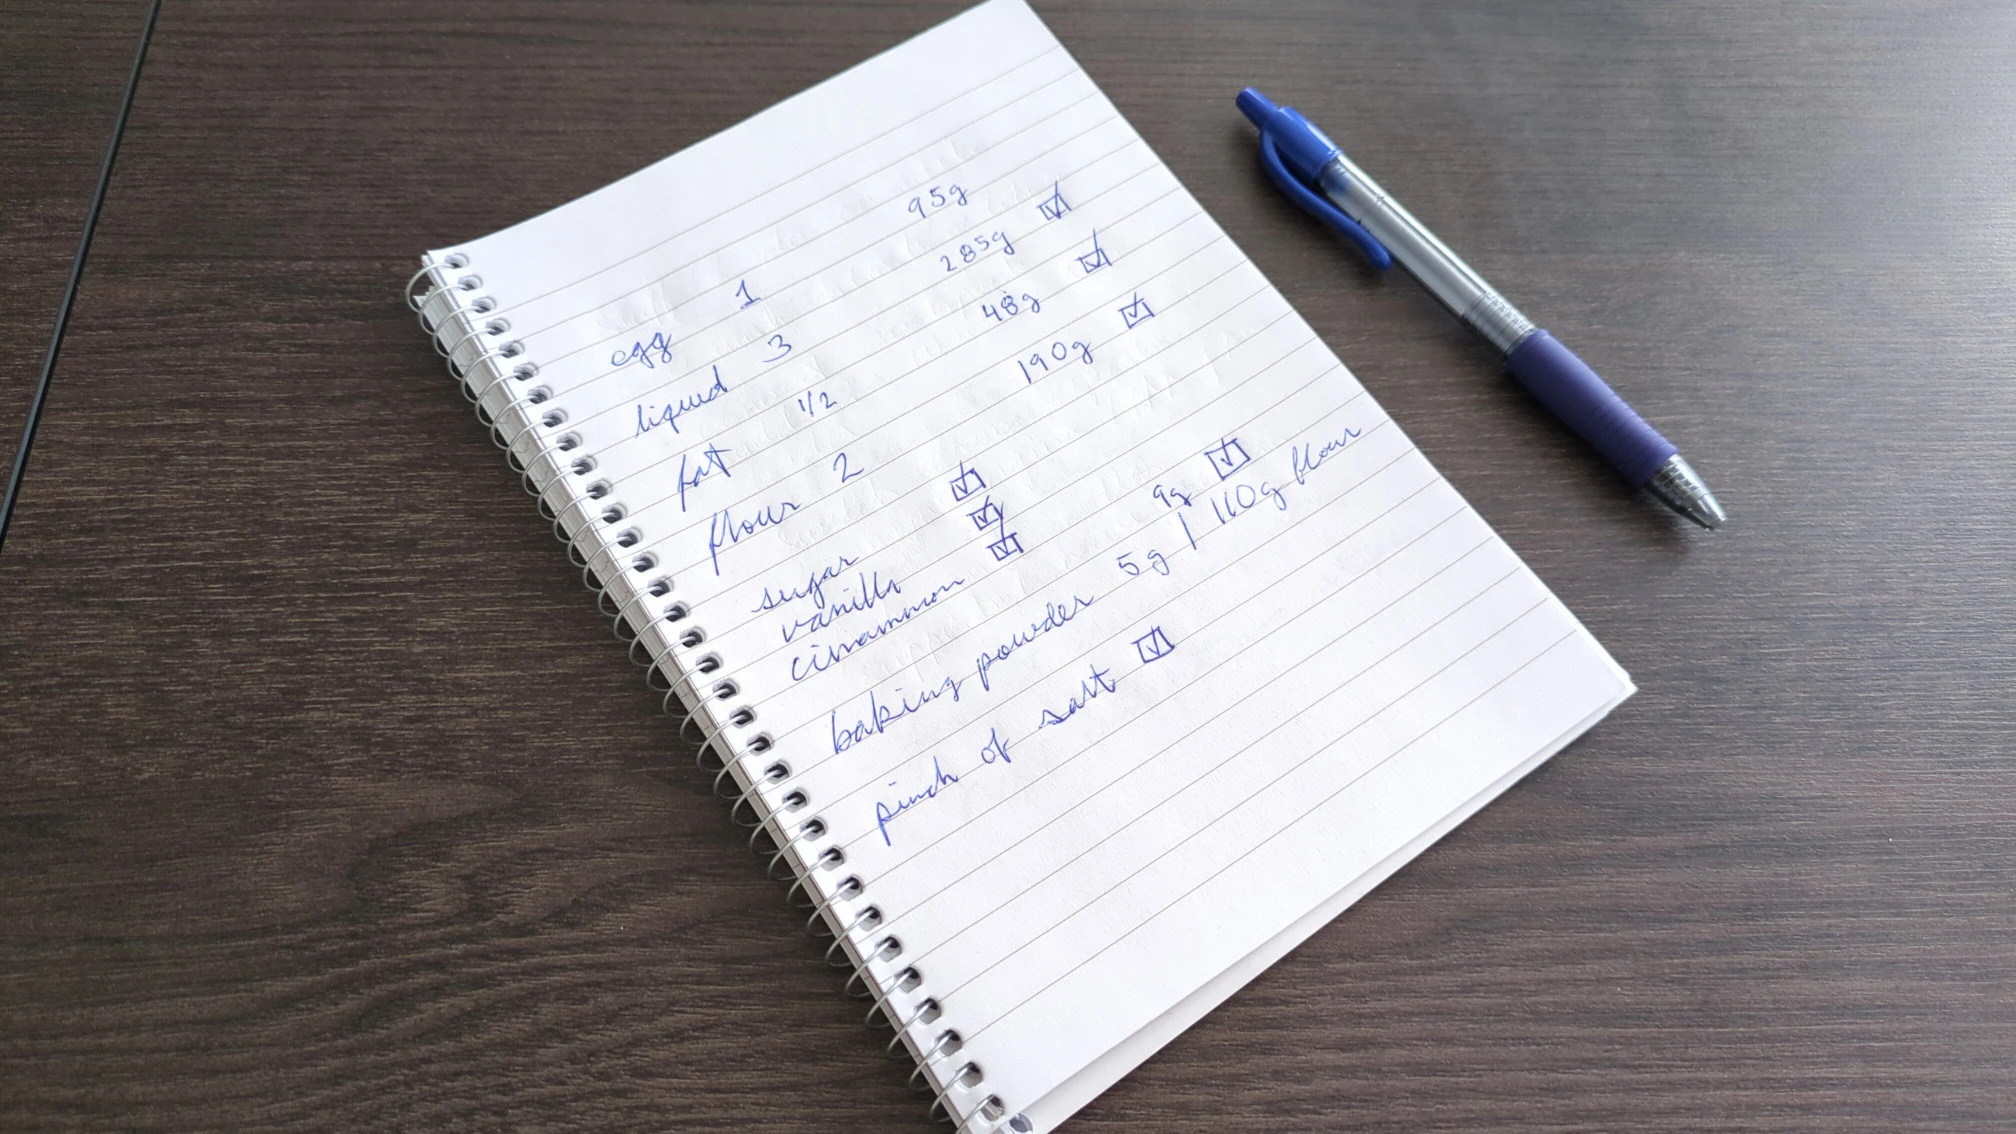 egg 1 95g
liquid 3 285g ☑
fat 1/2 48g ☑
flour 2 190g ☑
sugar ☑
vanilla ☑
cinammon ☑
baking powder 5g | 110g flour 9g ☑
pinch of salt ☑